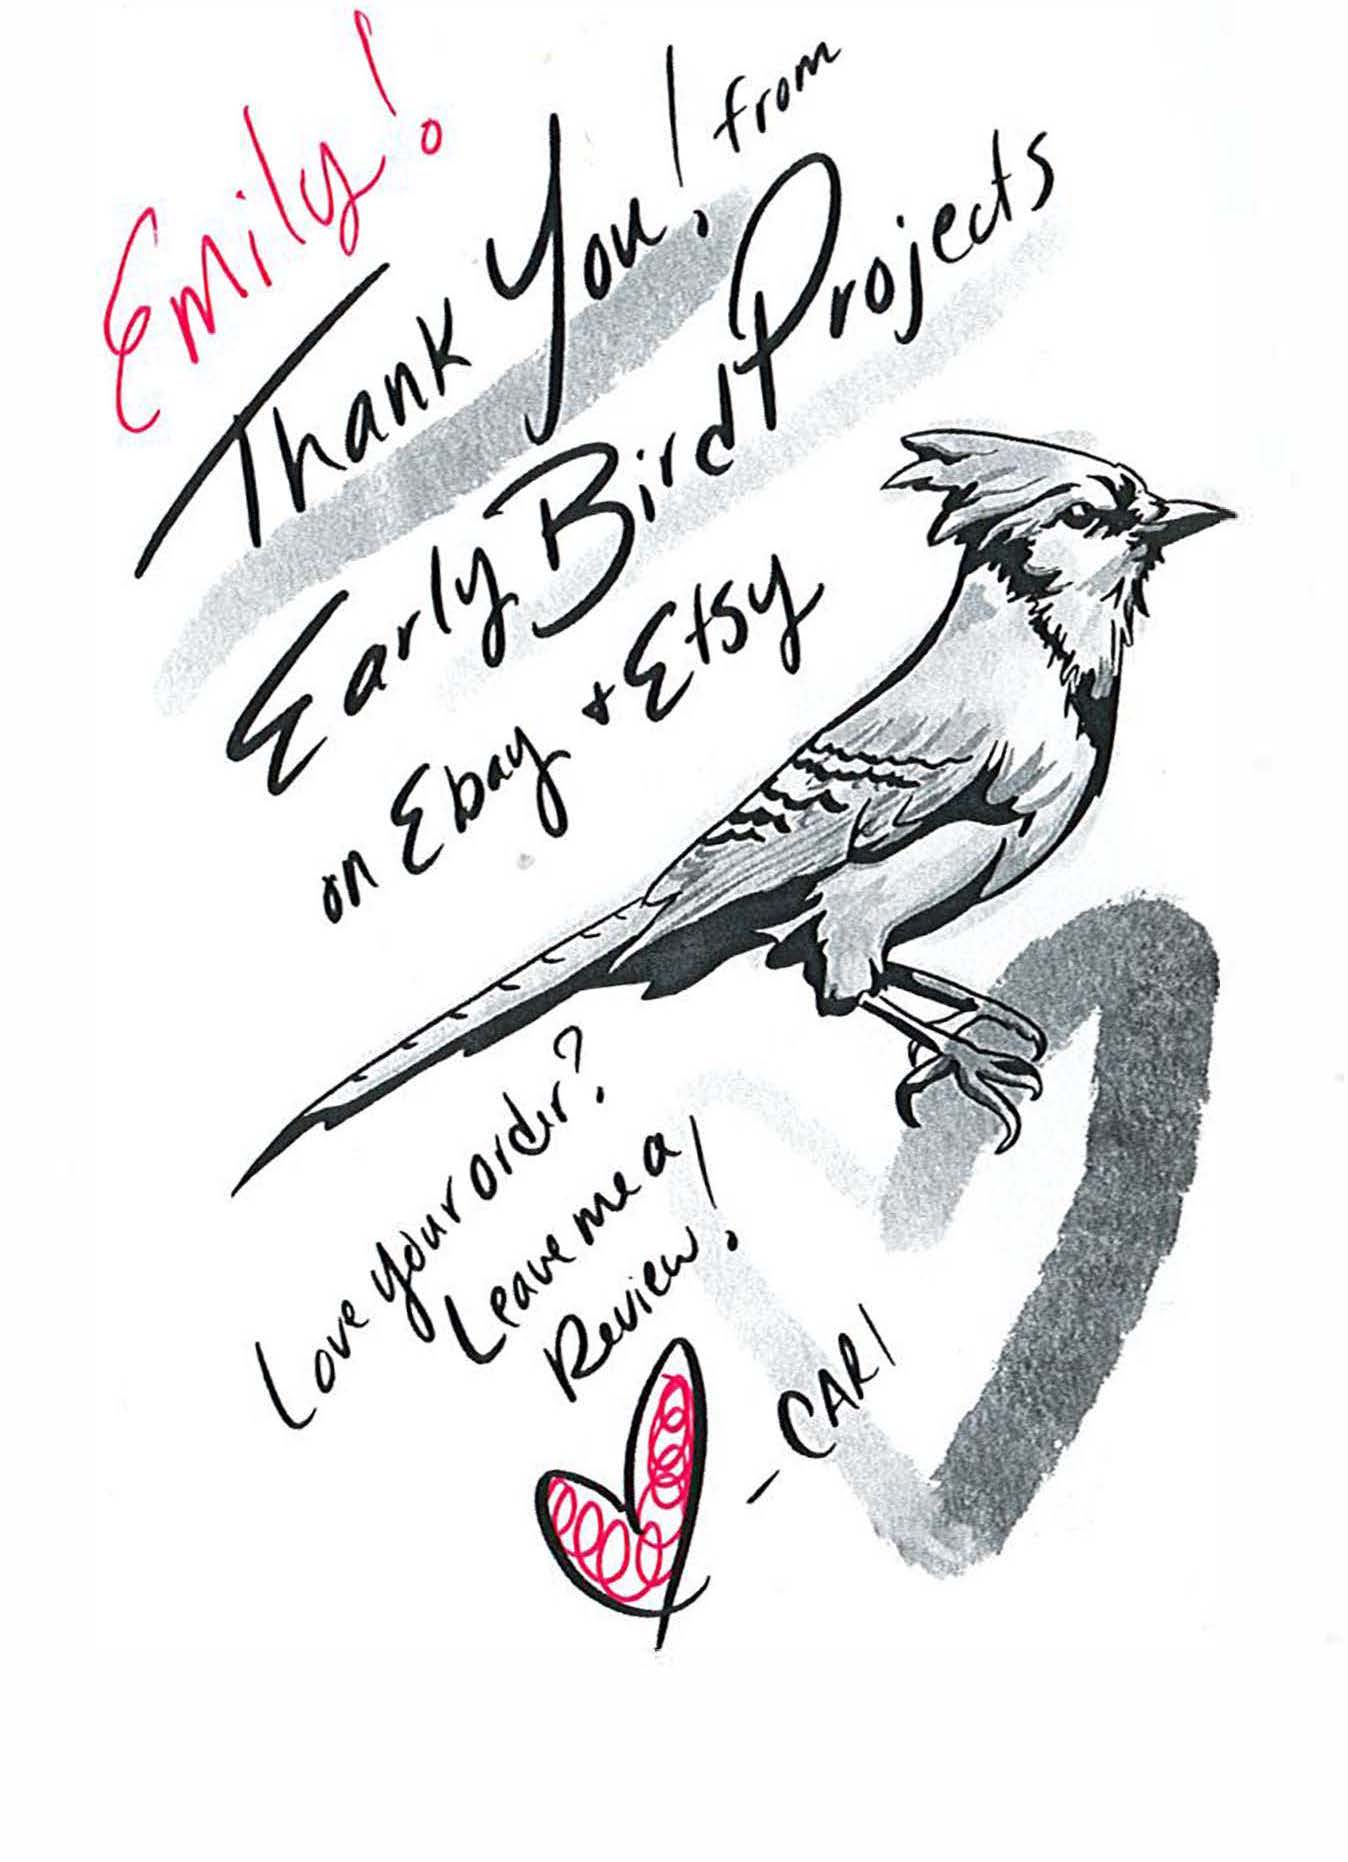 Emily!
Thank You! from
Early Bird Projects
on Ebay + Etsy
Love your order?
Leave me a
Review!
- CARI